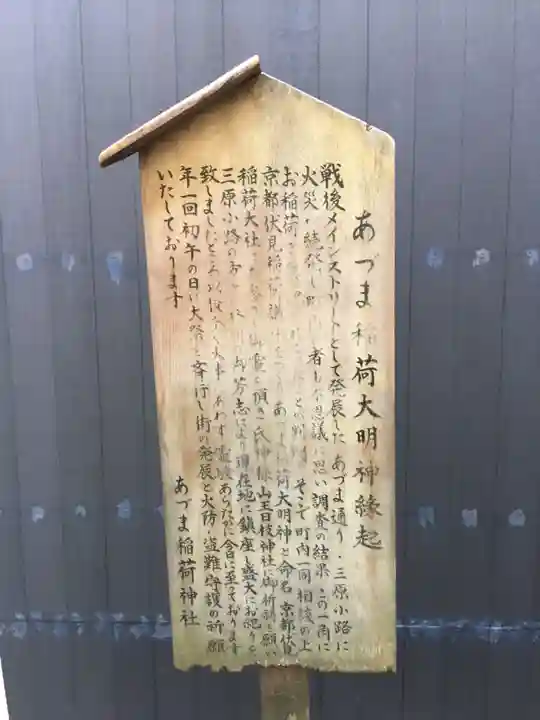 あづま稲荷大明神縁起
戦後メインストリートとして発展した あづま通り・三原小路に
火災が続発し 者も不思議に思い調査の結果 この一角に
お稲荷 との そこで町内一同相談の上
京都伏見稲荷 あづま稲荷大明神と命名 京都伏見
稲荷大社 御霊を頂き 氏神様山王日枝神社に御祈祷を願い
三原小路の 御芳志により現在地に鎮座し盛大にお祀り
致しましたところ以後 火事 あわず霊験あらたかに今日に至っております
年一回初午の日に大祭を斉行し街の発展と火防・盗難守護の祈願
いたしております
あづま稲荷神社